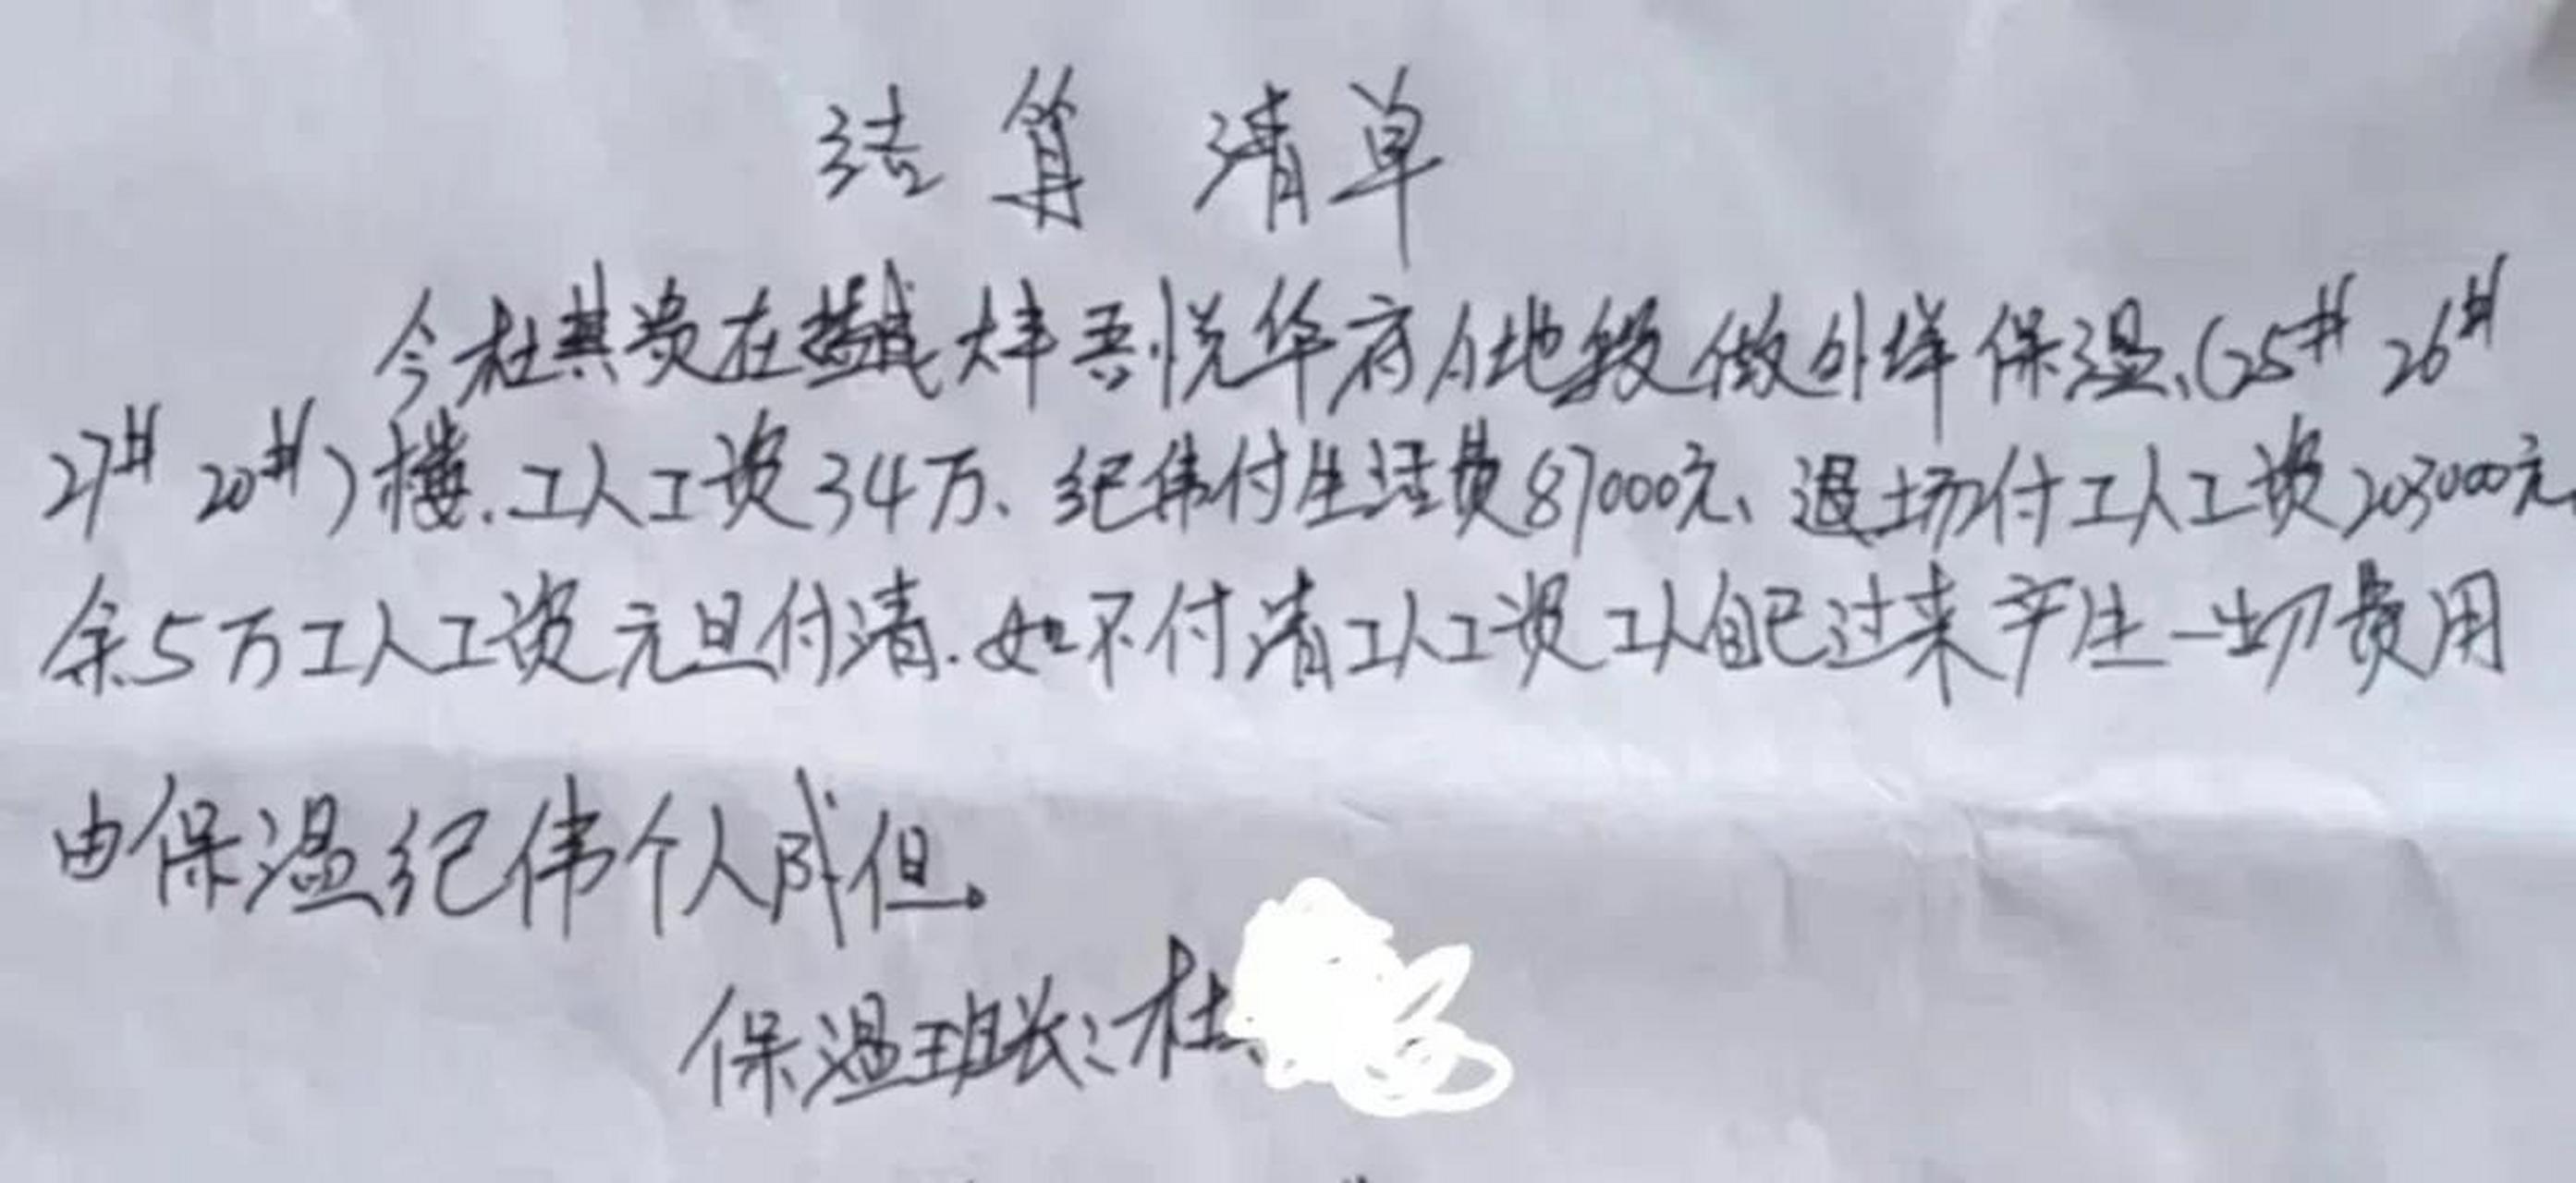 结算清单
今杜其贵在盐城大丰吾悦华府A地段做外墙保温、(25# 26#
27# 20#)楼.工人工资34万、纪伟付生活费87000元、退场付工人工资203000元
余5万工人工资元旦付清.如不付清工人工资工人自己过来产生一切费用
由保温纪伟个人成但。
保温班长:杜